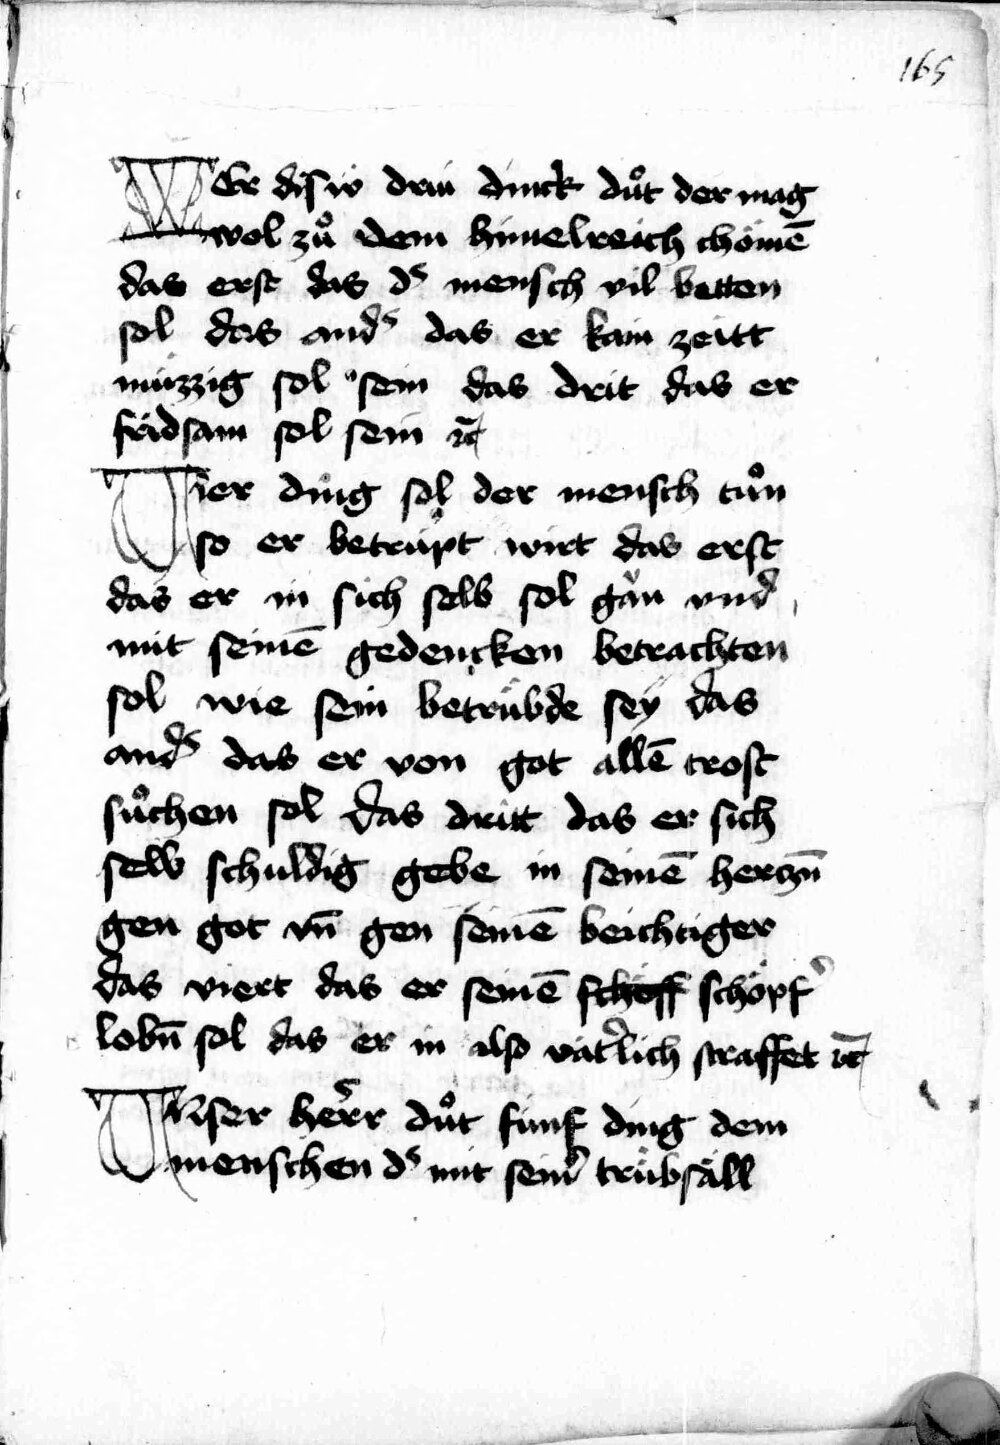 165
WEr disiv driu dinck důt der mag
wol zů dem himelreich chömē
das erst das dˢ mensch vil betten
sol das andˢ das er kain zeitt
müzzig sol sein das drit das er
fridsam sol sein ꝛc̄
Vier ding sol der mensch tůn
so er betrüpt wirt das erst
das er in sich selb sol gän vnd
mit seinē gedencken betrachten
sol wie sein betrübde seÿ das
andˢ das er von got allē trost
sůchen sol das dritt das er sich
selb schuldig gebe in seinē hertzn̄
gen got vn̄ gen seinē beichtiger
das viert das er seinē schoff schöpfˀ
lobn̄ sol das er in also vätˀlich straffet ꝛc̄
VNser herˢr důt fünf ding dem
menschen dˢ mit seinˀ trübsäll